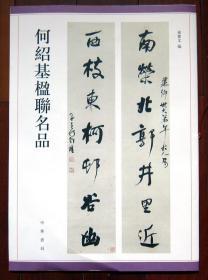 何紹基楹聯名品
中華書局
南榮北郭井里近
西枝東柯邨谷幽